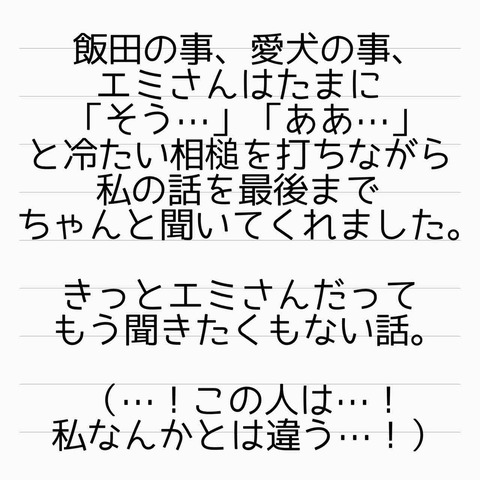 飯田の事、愛犬の事、
エミさんはたまに
「そう…」「ああ…」
と冷たい相槌を打ちながら
私の話を最後まで
ちゃんと聞いてくれました。
きっとエミさんだって
もう聞きたくもない話。
（…！この人は…！
私なんかとは違う…！）